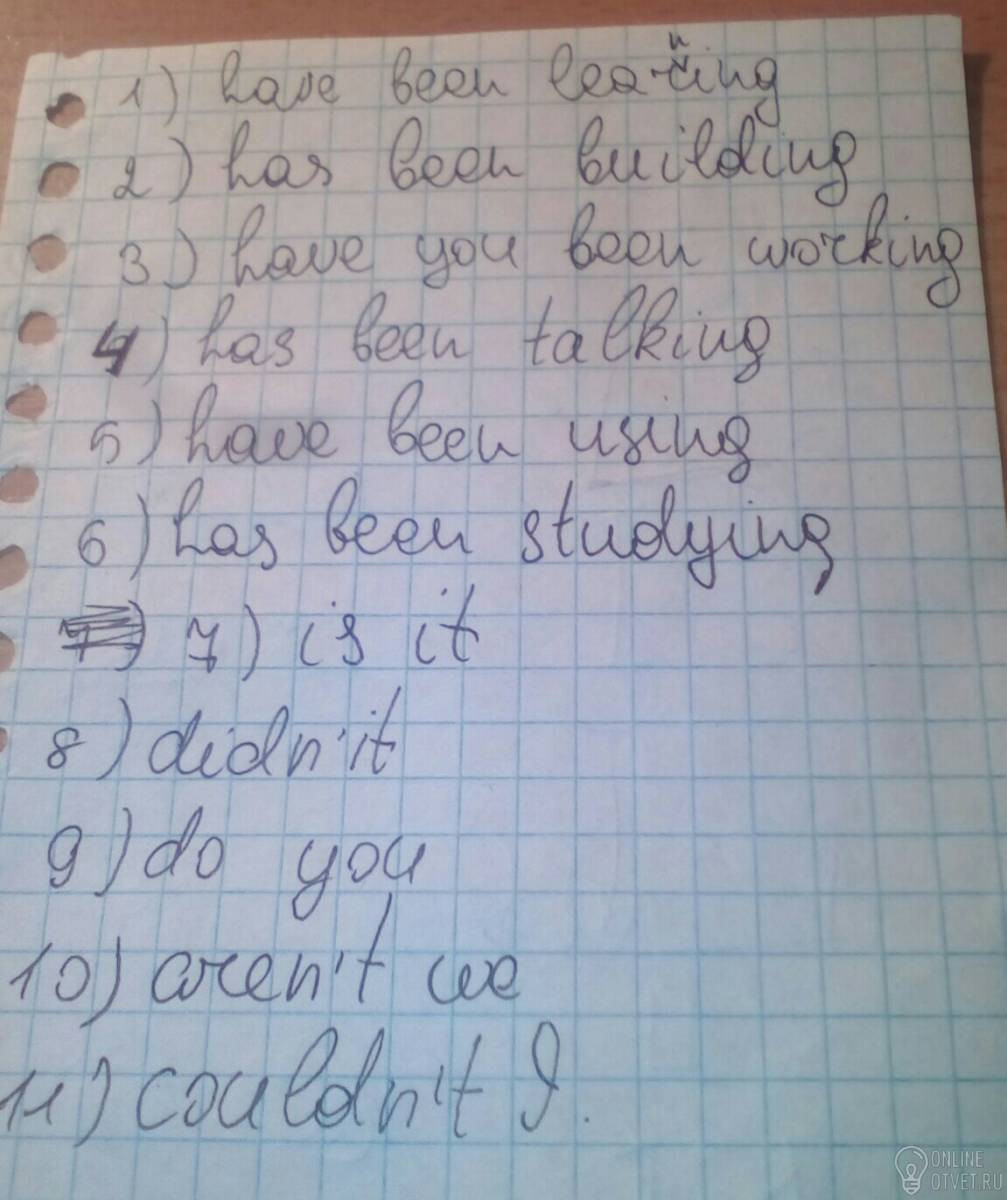 1) have been learning
2) has been building
3) have you been working
4) has been talking
5) have been using
6) has been studying
7) is it
8) didn'it
9) do you
10) aren't we
11) couldn't I.
ONLINE
OTVET.RU